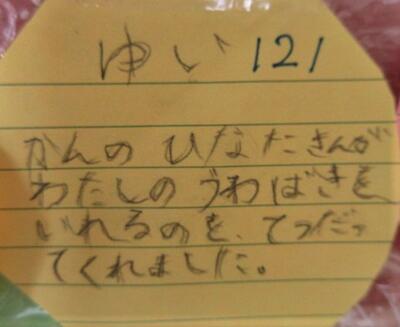 ゆい 121
かんの ひなたさんが
わたしの うわばきを
いれるのを、てつだっ
てくれました。